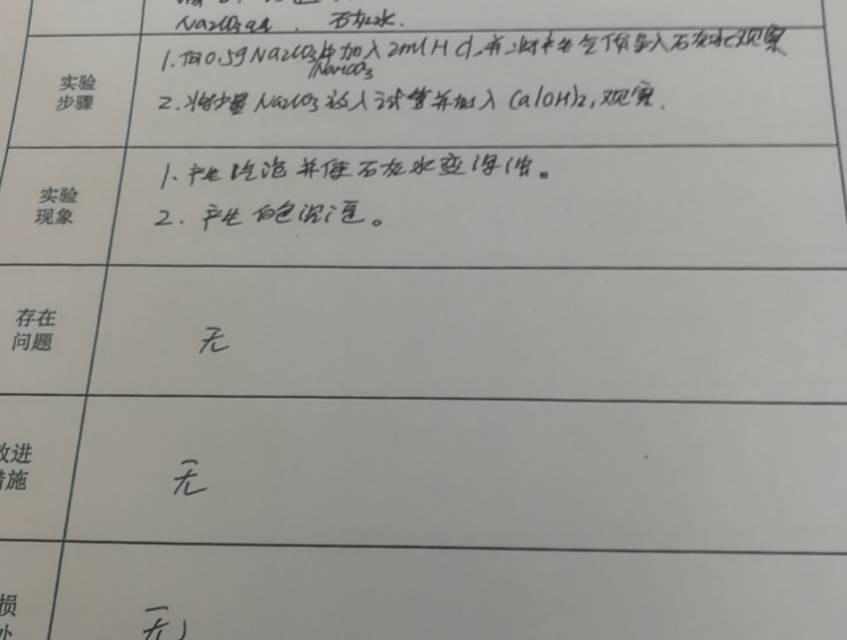 Na2CO3aq. 石灰水.
实验
步骤
1.向0.5gNa2CO3中加入2mlHCl,并将产生气体导入石灰水观察
/NaHCO3
2.将少量Na2CO3放入试管并加入Ca(OH)2,观察.
实验
现象
1.产生气泡并使石灰水变浑浊。
2.产生白色沉淀。
存在
问题
无
改进
措施
无
损
处
无